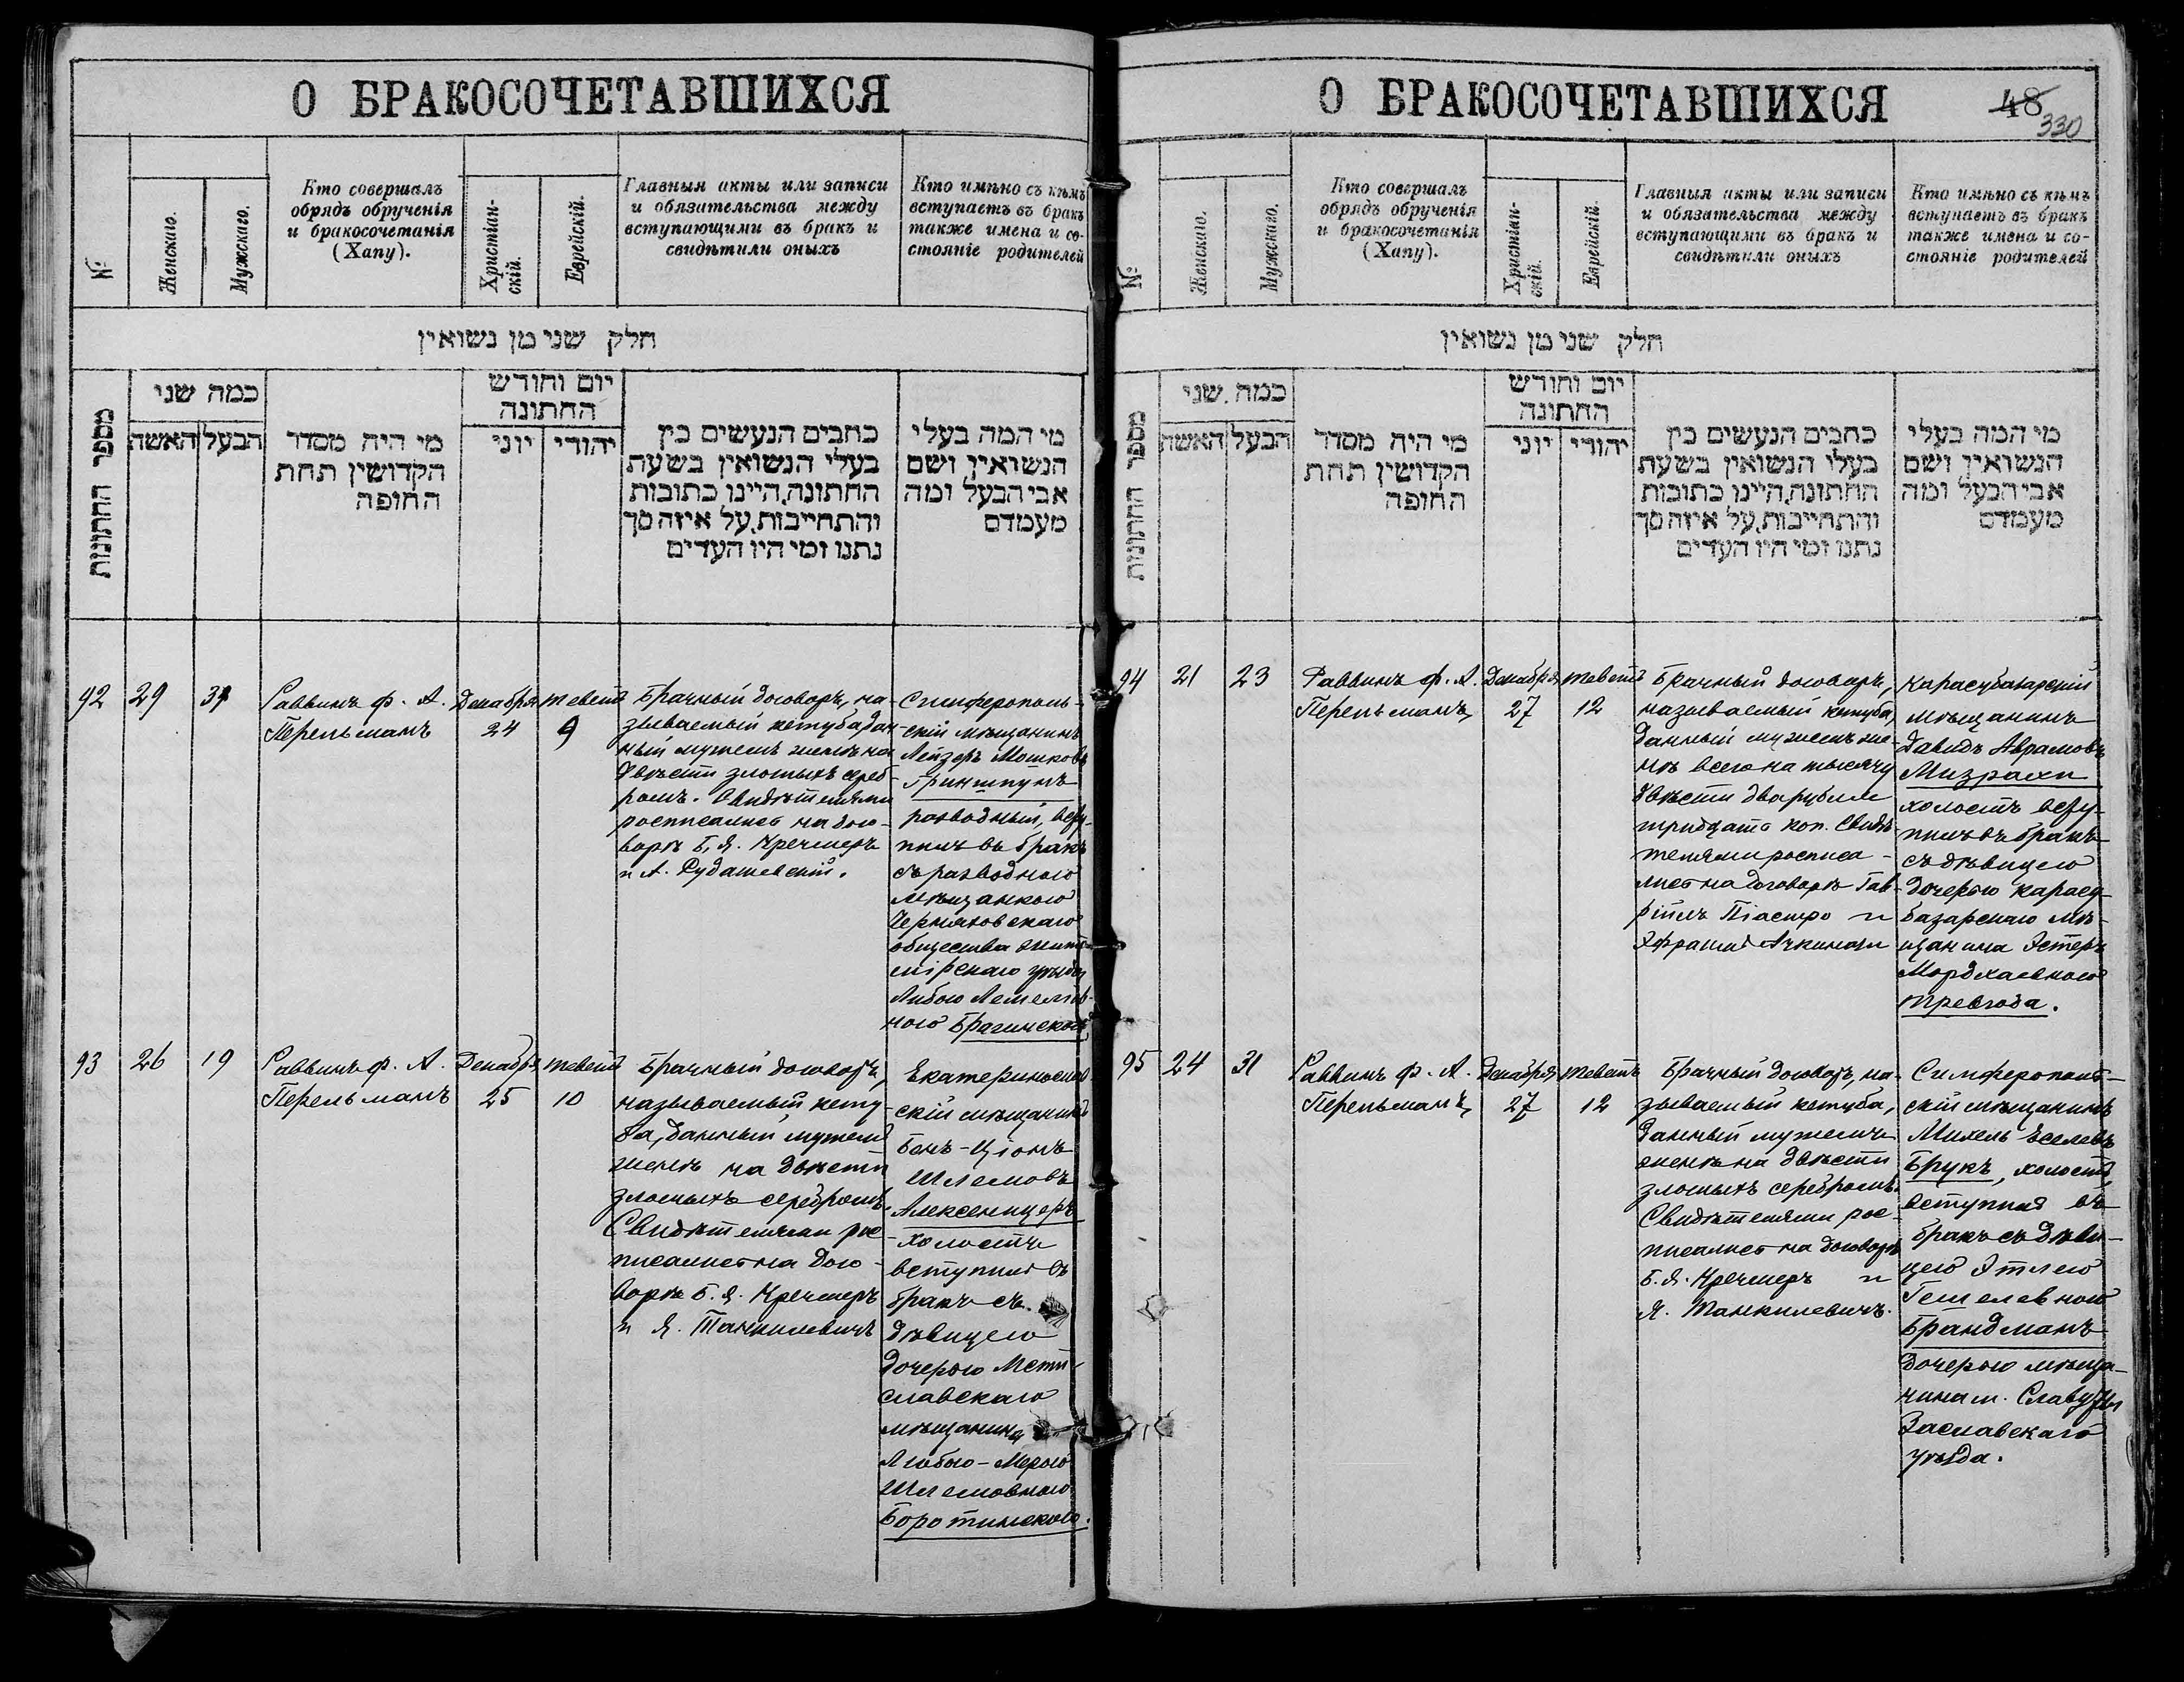 О БРАКОСОЧЕТАВШИХСЯ
№
Женскаго.
Мужскаго.
Кто совершалъ
обрядъ обрученія
и бракосочетанія
(Хапу).
Христіан-
скій.
Еврейскій.
Главныя акты или записи
и обязательства между
вступающими въ бракъ и
свидѣтили оныхъ
Кто имѣно съ кѣмъ
вступаетъ въ бракъ
также имена и со-
стояніе родителей
חלק שני מן נשואין
מספר החתונות
כמה שני
האשה
הבעל
מי היה מסדר
הקדושין תחת
החופה
יום וחודש
החתונה
יוני
יהודי
כתבים הנעשים בין
בעלי הנשואין בשעת
החתונה,היינו כתובות
והתחייבות,על איזה סך
נתנו ומי היו העדים
מי המה בעלי
הנשואין ושם
אבי הבעל ומה
מעמדם
92
29
Раввинъ Ф. А.
Перельманъ
Декабря
24
Теветъ
9
Брачный договоръ, на-
зываемый кетуба дан-
ный мужемъ женѣ на
двѣсти злотыхъ сереб-
ромъ. Свидѣтелями
росписались на дого-
ворѣ Б. Я. Кречмеръ
и А. Рудашевскій.
Симферополь-
скій мѣщанинъ
Лейзеръ Мошковъ
Гринштунъ
разводный, всту-
пилъ въ бракъ
съ разводною
мѣщанкою
Черняховскаго
общества Жито-
мірскаго уѣзда
Либою
Брагинскою
93
26
19
Раввинъ Ф. А.
Перельманъ
Декабря
25
Теветъ
10
Брачный договоръ,
называемый кету-
ба, данный мужемъ
женѣ на двѣсти
злотыхъ серебромъ.
Свидѣтелями рос-
писались на дого-
ворѣ Б. Я. Кречмеръ
и Я. Танкилевичъ
Екатеринослав-
скій мѣщанинъ
Бенъ-Ціонъ
Шлемовъ
Алексенцеръ
холостъ
вступилъ въ
бракъ съ
дѣвицею
дочерью Мсти-
славскаго
мѣщанина
Любою-Мерою
Шлемовною
Боротинскою.
О БРАКОСОЧЕТАВШИХСЯ
48
330
№
Женскаго.
Мужскаго.
Кто совершалъ
обрядъ обрученія
и бракосочетанія
(Хапу).
Христіан-
скій.
Еврейскій.
Главныя акты или записи
и обязательства между
вступающими въ бракъ и
свидѣтили оныхъ
Кто имѣно съ кѣмъ
вступаетъ въ бракъ
также имена и со-
стояніе родителей
חלק שני מן נשואין
מספר החתונות
כמה שני
האשה
הבעל
מי היה מסדר
הקדושין תחת
החופה
יום וחודש
החתונה
יוני
יהודי
כתבים הנעשים בין
בעלי הנשואין בשעת
החתונה,היינו כתובות
והתחייבות,על איזה סך
נתנו ומי היו העדים
מי המה בעלי
הנשואין ושם
אבי הבעל ומה
מעמדם
94
21
23
Раввинъ Ф. А.
Перельманъ
Декабря
27
Теветъ
12
Брачный договоръ,
называемый кетуба,
данный мужемъ же-
нѣ всего на тысячу
двѣсти два рубля
тридцать коп. Свидѣ-
телями росписа-
лись на договорѣ Гав-
ріилъ Піастро и
Эфраимъ Ачкинази
Карасубазарскій
мѣщанинъ
Давидъ Аврамовъ
Мизрахи
холостъ всту-
пилъ въ бракъ
съ дѣвицею
дочерью Карасу-
базарскаго мѣ-
щанина Эстеръ
Мордхаевною
Тревгода.
95
24
31
Раввинъ Ф. А.
Перельманъ,
Декабря
27
Теветъ
12
Брачный договоръ, на-
зываемый кетуба,
данный мужемъ
женѣ на двѣсти
злотыхъ серебромъ.
Свидѣтелями рос-
писались на договорѣ
Б. Я. Кречмеръ и
Я. Танкилевичъ.
Симферополь-
скій мѣщанинъ
Михель Іоселевъ
Брукъ, холостъ,
вступилъ въ
бракъ съ дѣви-
цею Этлею
Гешелевною
Брандманъ
дочерью мѣща-
нина м. Славуты
Заславскаго
уѣзда.